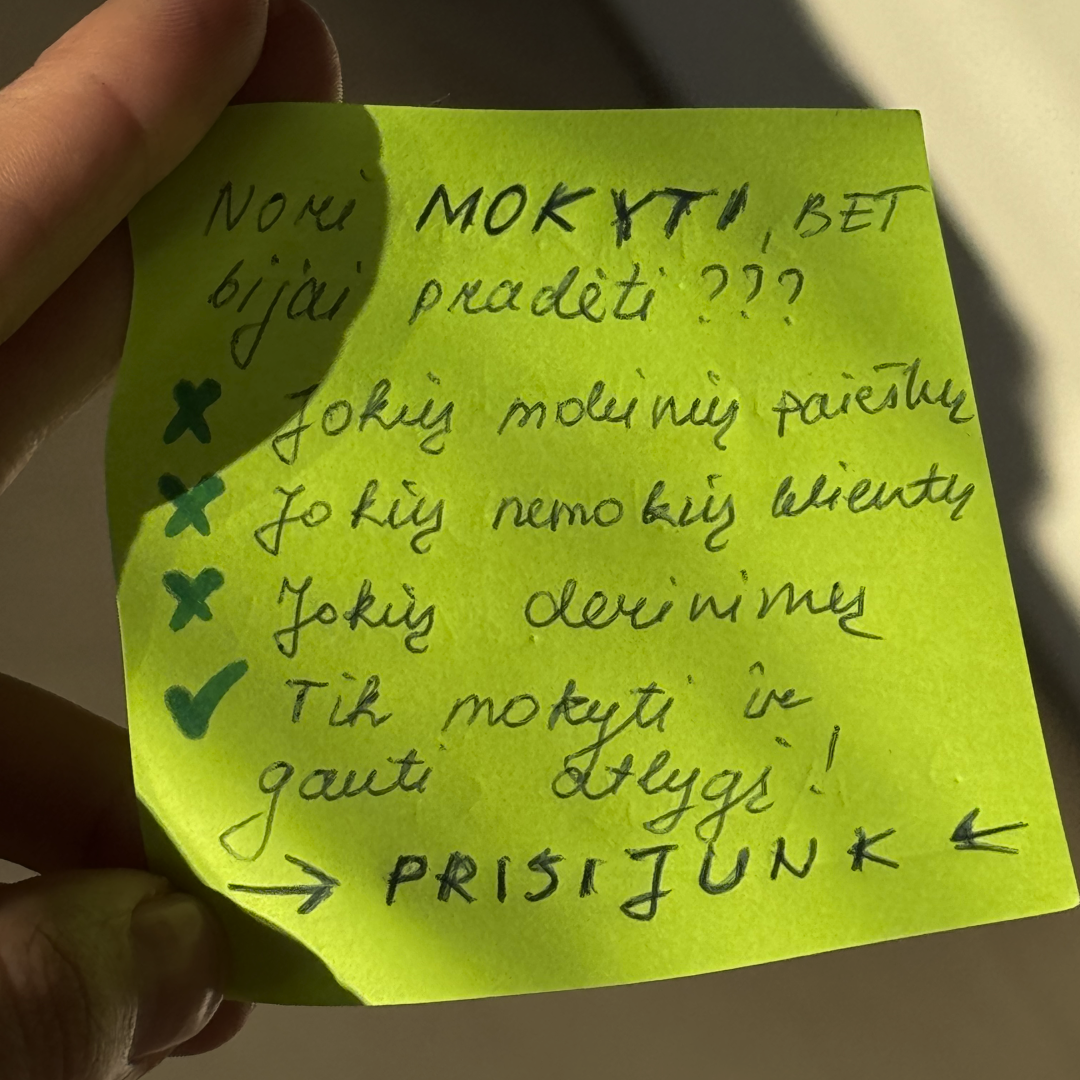 Nori MOKYTI, BET
bijai pradėti ???
✗ Jokių mokinių paieškų
✗ Jokių nemokių klientų
✗ Jokių derinimų
✓ Tik mokyti ir
gauti atlygį!
→ PRISIJUNK ←